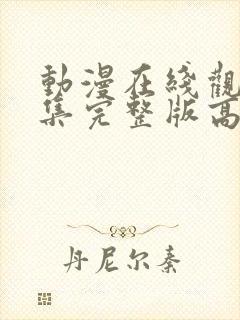 動漫在綫觀
集完整版高
丹尼尔秦